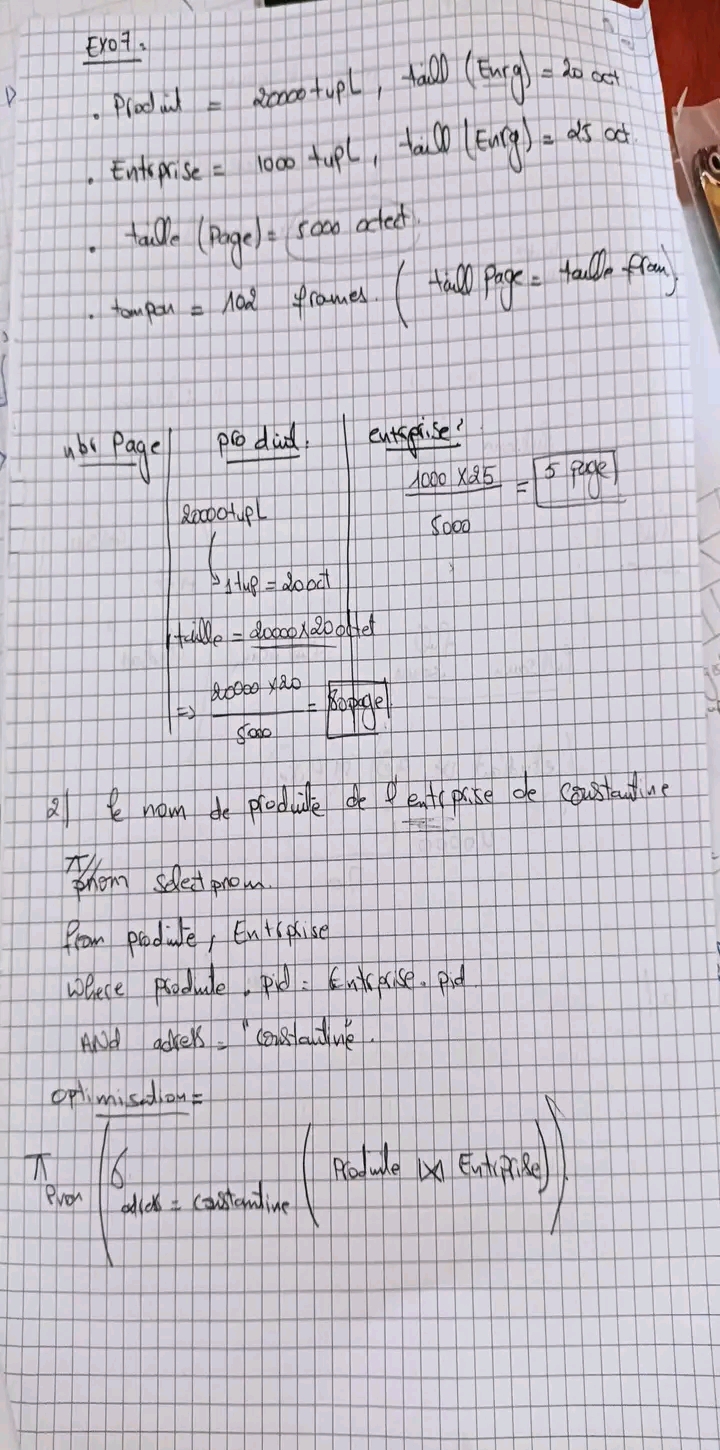 EX07:
. Produit = 20000 tupl, taill (Enrg) = 20 oct
. Entrprise = 1000 tupl, taill (Enrg) = 25 oct.
. taille (Page) = 5000 octect.
. tampon = 102 frames. ( taill page = taille fram).
nbr Page | produit. | entrprise:
1000 x 25 / 5000 = 5 page
20000 tupL
↳ 1 tup = 20 oct
taille = 20000 x 20 octet
=> 20000 x 20 / 5000 = 80 page
2) le nom de produite de l'entrprise de constantine
π// pnom select pnom.
from produite, Entrprise
where produite . pid = Entrprise . pid
AND adress = "constantine".
optimisation =
π pnom ( σ adress = constantine ( Produite ⋈ Entrprise ) )